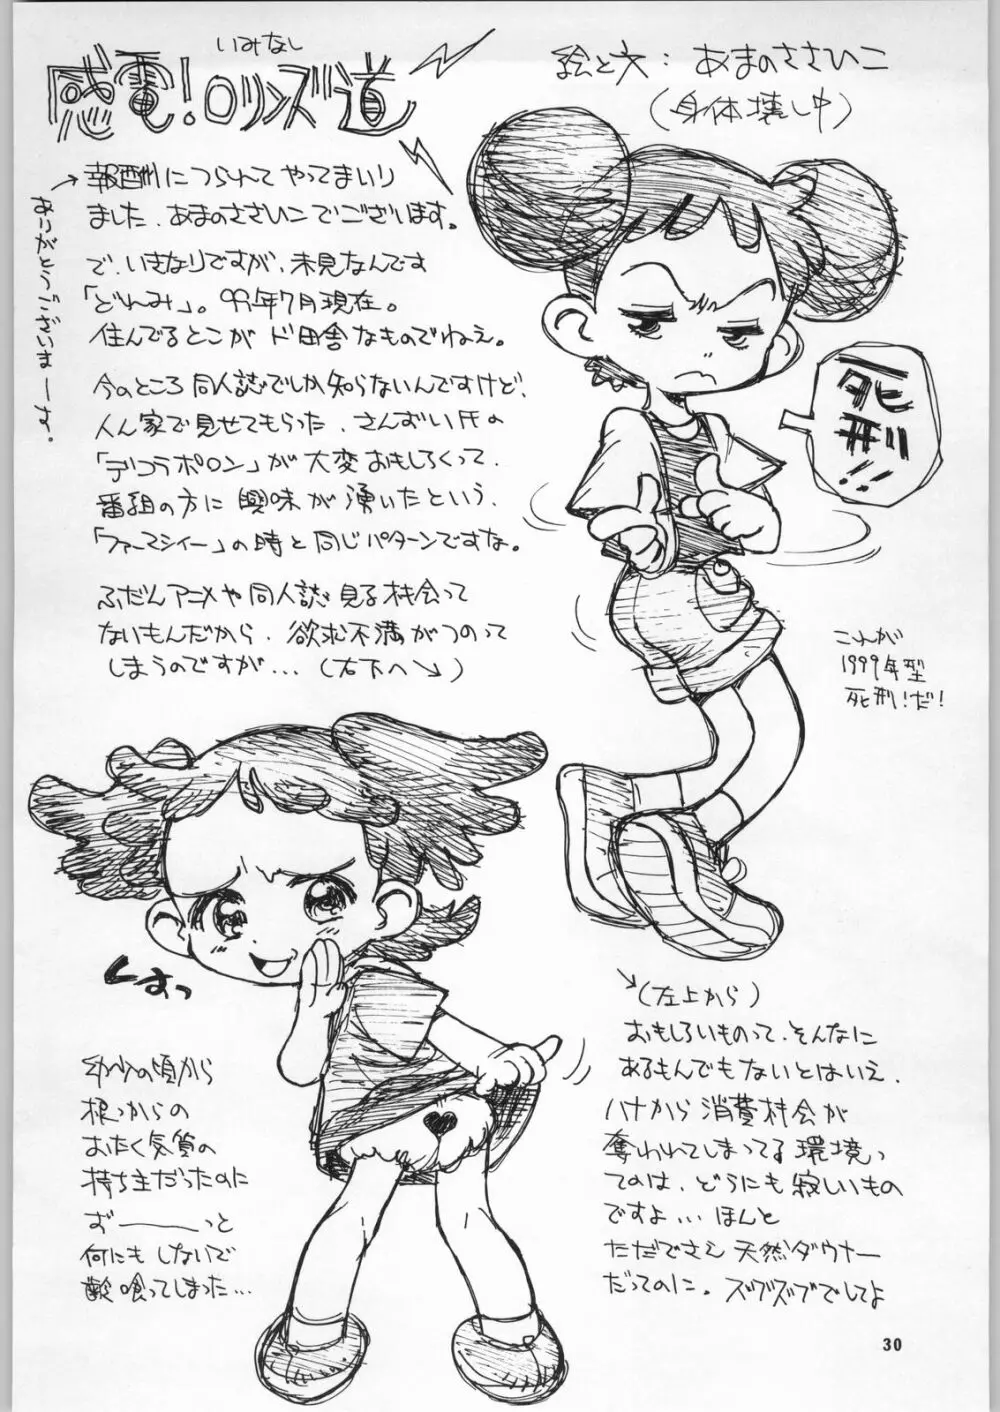 いみなし
感電!ロリンズ道
絵と文:あまのささひこ
(身体壊し中)
報酬につられてやってまいり
ました、あまのささひこでございます。
ありがとうございまーす。
で、いきなりですが、未見なんです
「どれみ」。99年7月現在。
住んでるとこがド田舎なものでねえ。
今のところ同人誌でしか知らないんですけど、
人ん家で見せてもらった、さんずい氏の
「デコラポロン」が大変おもしろくって、
番組の方に興味が湧いたという、
「ファーマシィー」の時と同じパターンですな。
ふだんアニメや同人誌見る機会って
ないもんだから、欲求不満がつのって
しまうのですが…(右下へ↘)
死刑!!
これが
1999年型
死刑!だ!
くすっ
幼少の頃から
根っからの
おたく気質の
持ち主だったのに
ずーーっと
何にもしないで
齢喰ってしまった…
↘(左上から)
おもしろいものって、そんなに
あるもんでもないとはいえ、
ハナから消費機会が
奪われてしまってる環境っ
てのは、どうにも寂しいもの
ですよ…ほんと
ただでさえ天然ダウナー
だってのに。ズブズブでしてよ
30